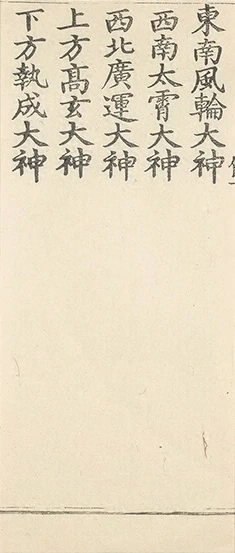 東南風輪大神
西南太霄大神
西北廣運大神
上方髙玄大神
下方執成大神